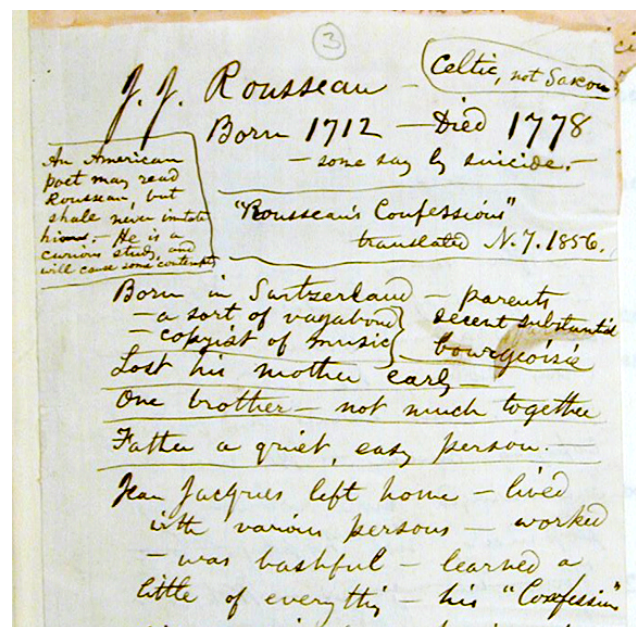 3
J. J. Rousseau — Celtic, not Saxon
Born 1712 — Died 1778
— some say by suicide. —
An American
poet may read
Rousseau, but
shall never imitate
him. — He is a
curious study, and
will cause some contempt
"Rousseau's Confessions"
translated N.Y. 1856.
Born in Switzerland — parents
— a sort of vagabond
— copyist of music
decent substantial
bourgeoisie
Lost his mother early —
One brother — not much together
Father a quiet, easy person. —
Jean Jacques left home — lived
with various persons — worked
— was bashful — learned a
little of everything — his "Confession